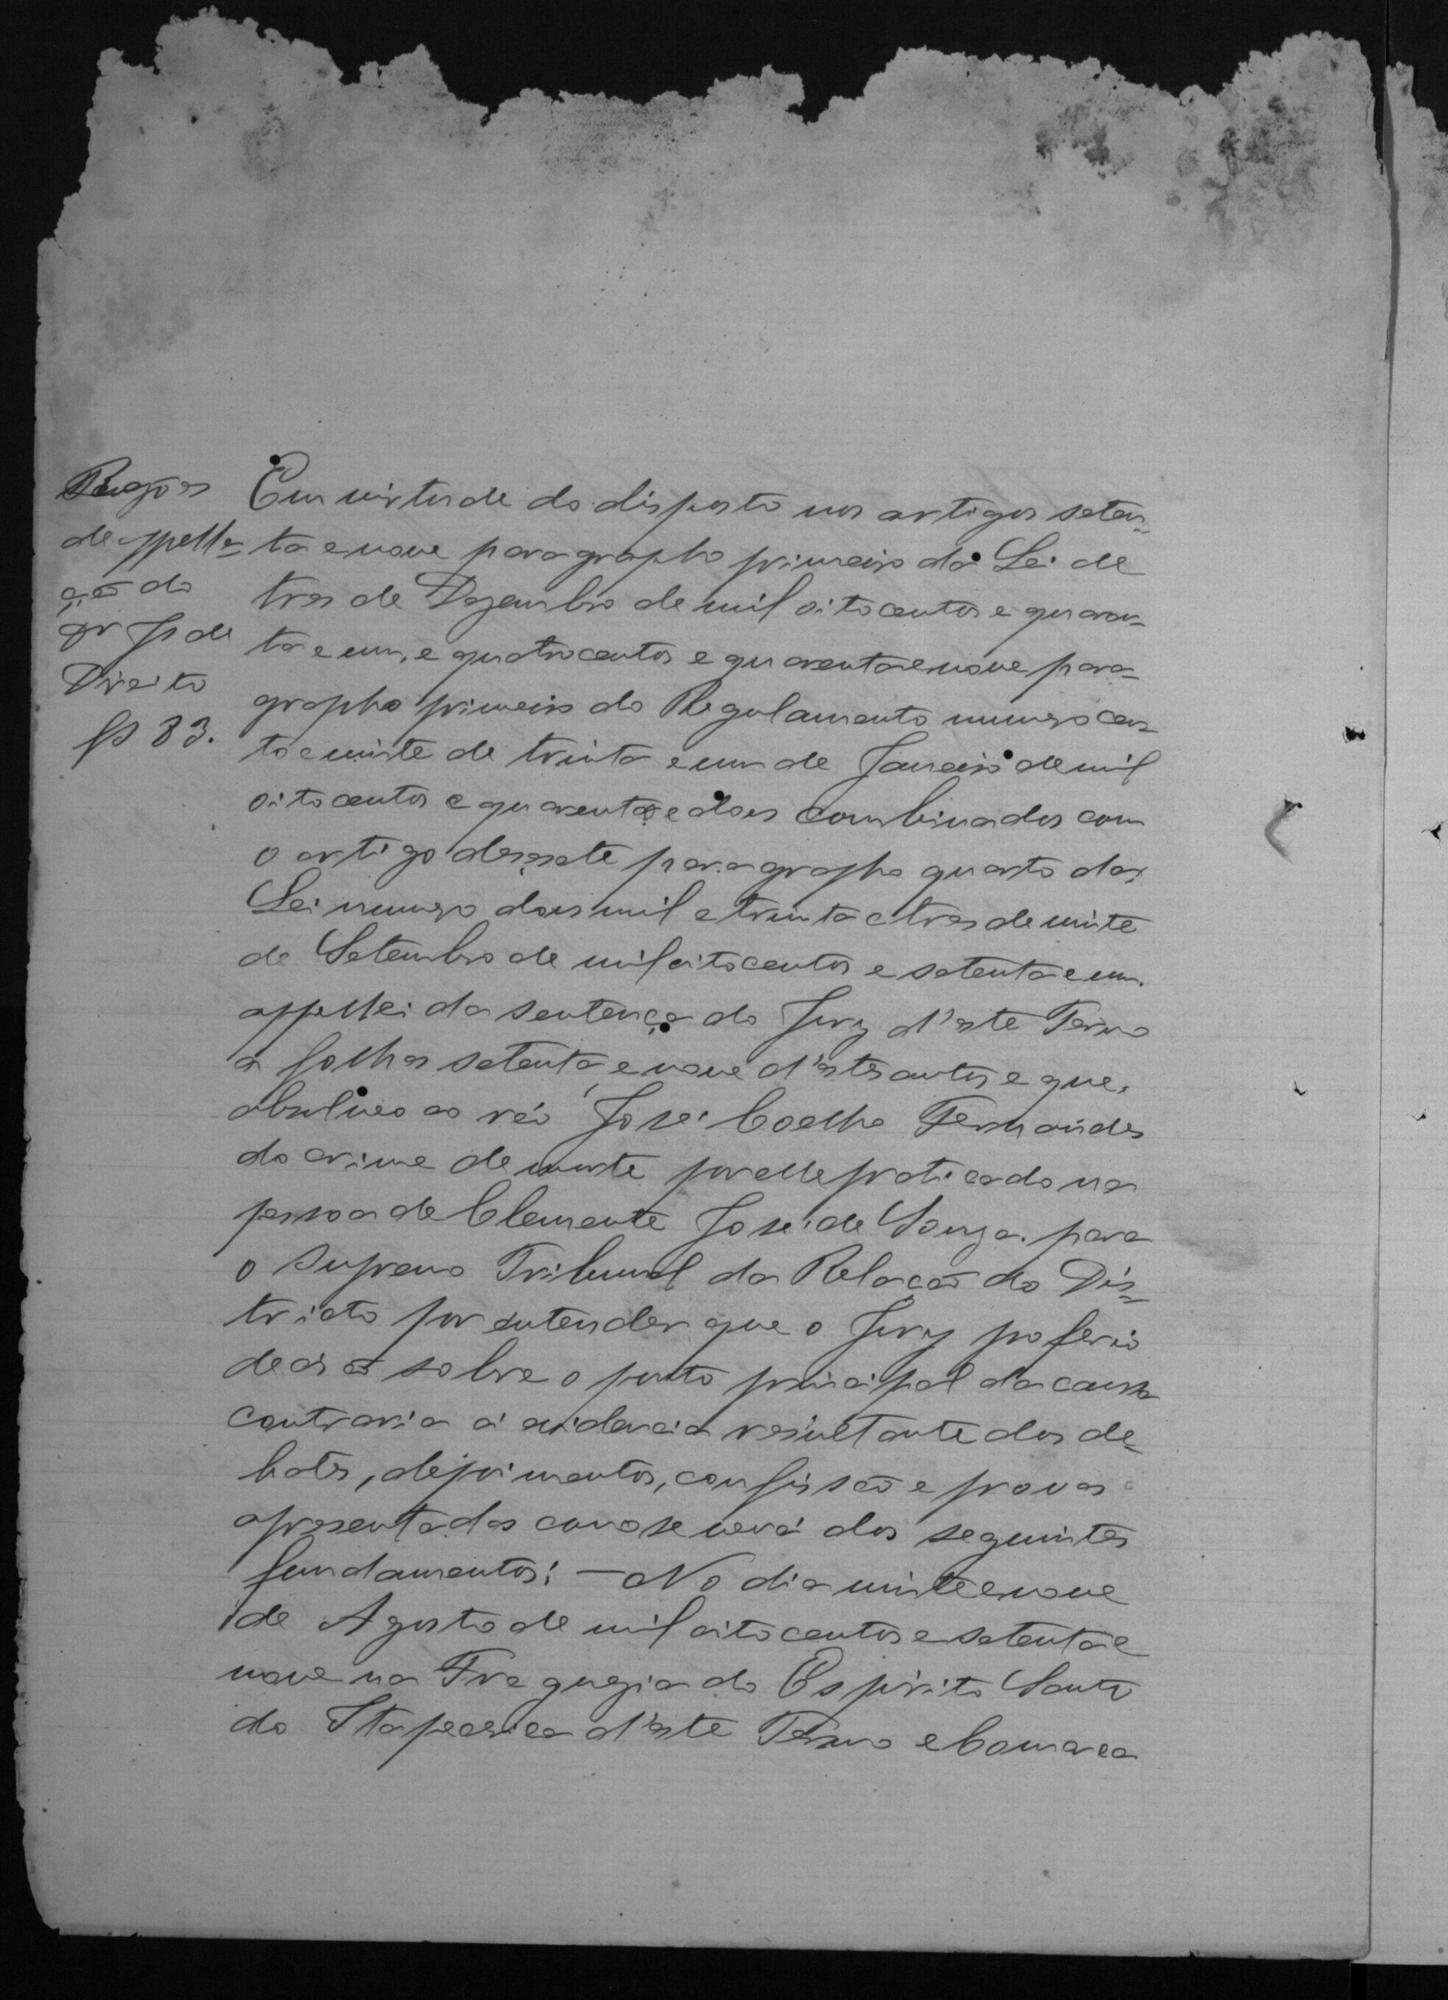 Rasões
de appella-
ção do
Dr Js de
Direito
fs 83.
Em virtude do disposto nos artigos seten-
ta e nove paragrapho primeiro da Lei de
tres de Dezembro de mil oito centos e quaren-
ta e um, e quatrocentos e quarenta e nove para-
grapho primeiro do Regulamento numero cen-
to e vinte de trinta e um de Janeiro de mil
oito centos e quarenta e dois combinados com
o artigo desesete paragrapho quarto da
Lei numero dois mil e trinta e tres de vinte
de Setembro de mil oito centos e setenta e um.
appellei da sentença do Jury d'este Termo
a folhas setenta e nove d'estes autos e que
absolveo ao réo José Coelho Fernandes
do crime de morte por elle praticado na
pessoa de Clemente José de Souza. para
o Supremo Tribunal da Relação do Dis-
tricto por entender que o Jury proferio
decisão sobre o ponto principal da causa
contraria á evidencia resultante dos de-
bates, depoimentos, confissão e provas
apresentadas como se verá dos seguintes
fundamentos: — No dia vinte e nove
de Agosto de mil oito centos e setenta e
nove na Freguezia do Espirito Santo
do Itapecerica d'este Termo e Comarca